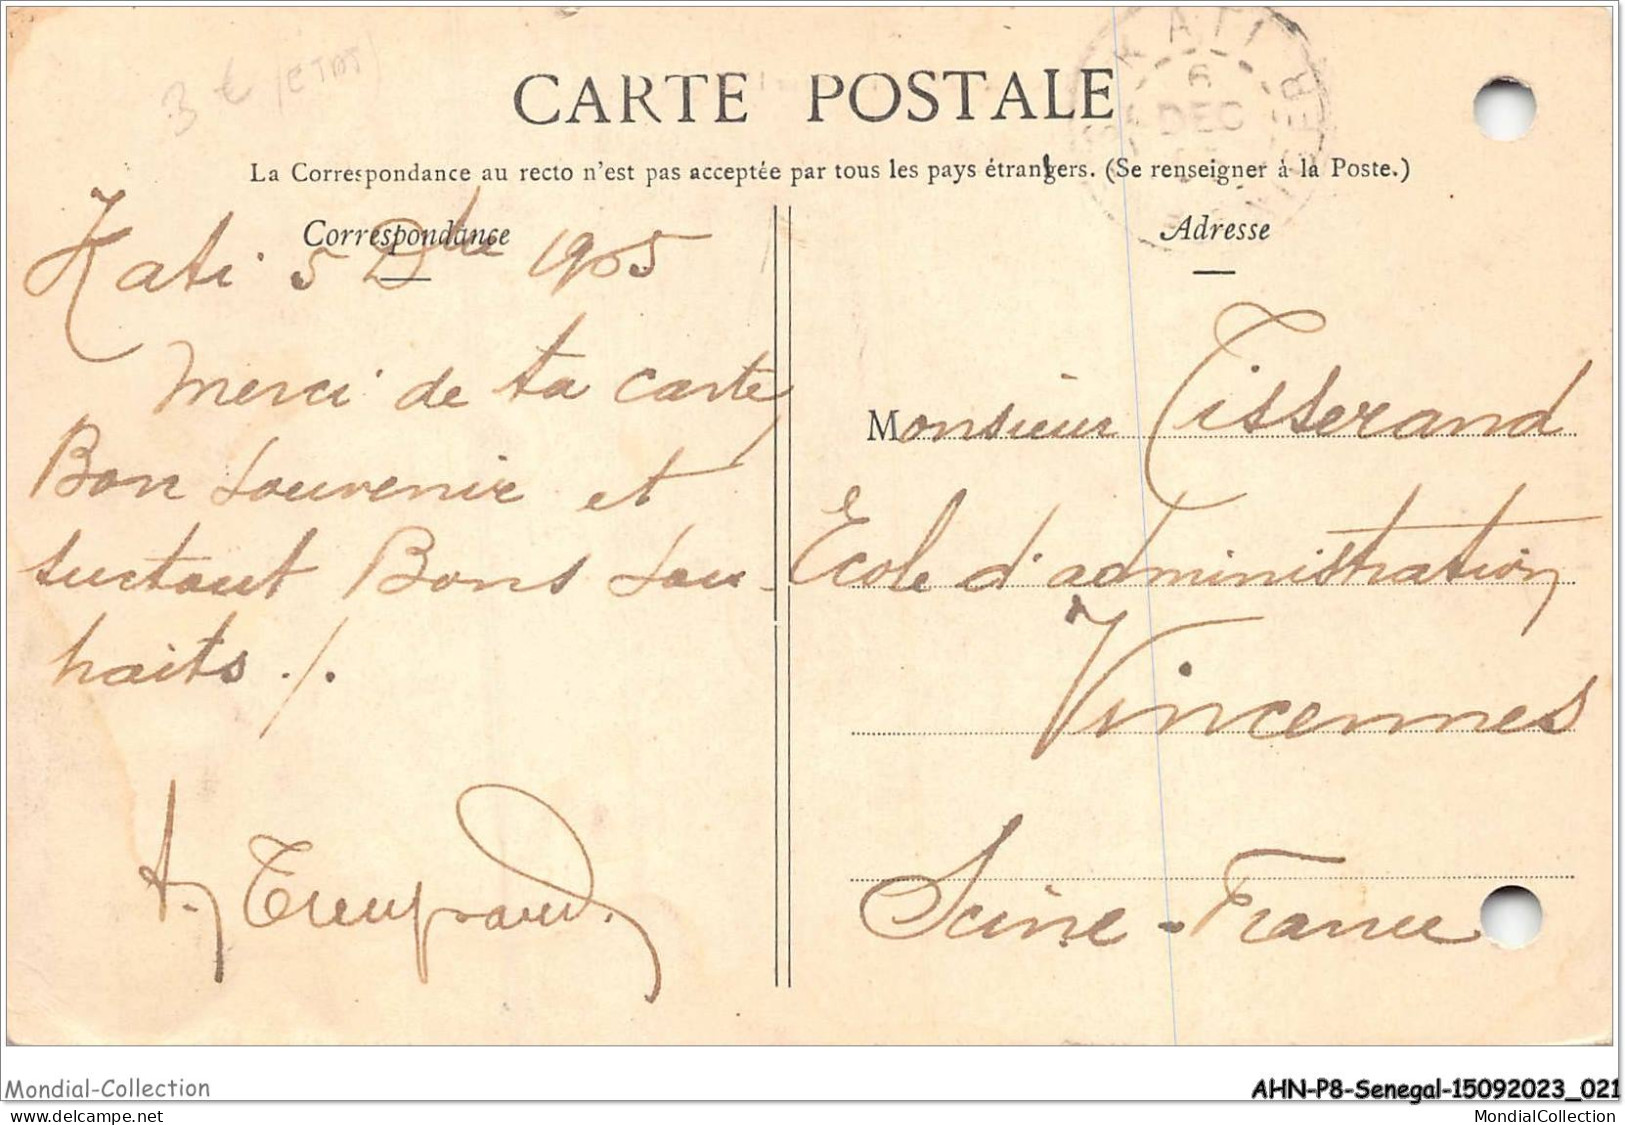 3 €
CARTE POSTALE
KATI
6
DEC
NIGER
La Correspondance au recto n'est pas acceptée par tous les pays étrangers. (Se renseigner à la Poste.)
Correspondance
Kati 5 Dbre 1905
Merci de ta carte,
Bon souvenir et
surtout Bons sou-
haits ./.
Adresse
Monsieur Tisserand
Ecole d'administration
Vincennes
Seine - France
Mondial-Collection
AHN-P8-Senegal-15092023_021
www.delcampe.net
MondialCollection